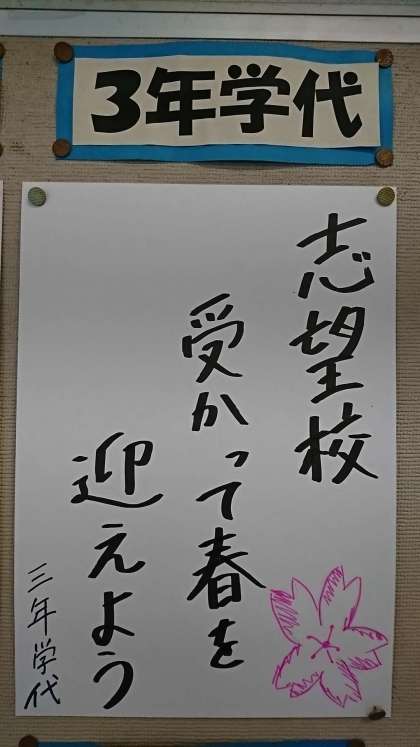 3年学代
志望校
受かって春を
迎えよう
三年学代